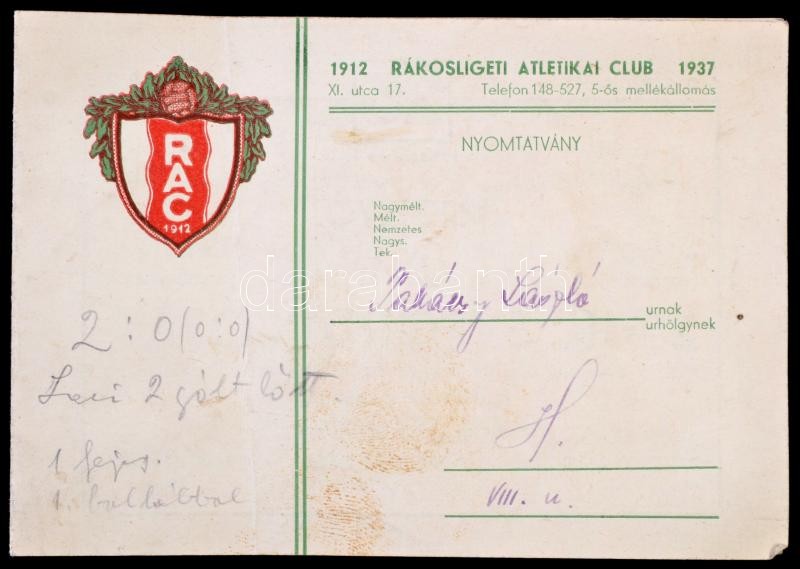 RAC
1912
1912 RÁKOSLIGETI ATLETIKAI CLUB 1937
XI. utca 17. Telefon 148-527, 5-ös mellékállomás
NYOMTATVÁNY
Nagymélt.
Mélt.
Nemzetes
Nagys.
Tek.
László
urnak
urhölgynek
H.
VIII. u.
2:0 (0:0)
Laci 2 gólt lőtt.
1 fejes.
1. ballábbal
darabanth